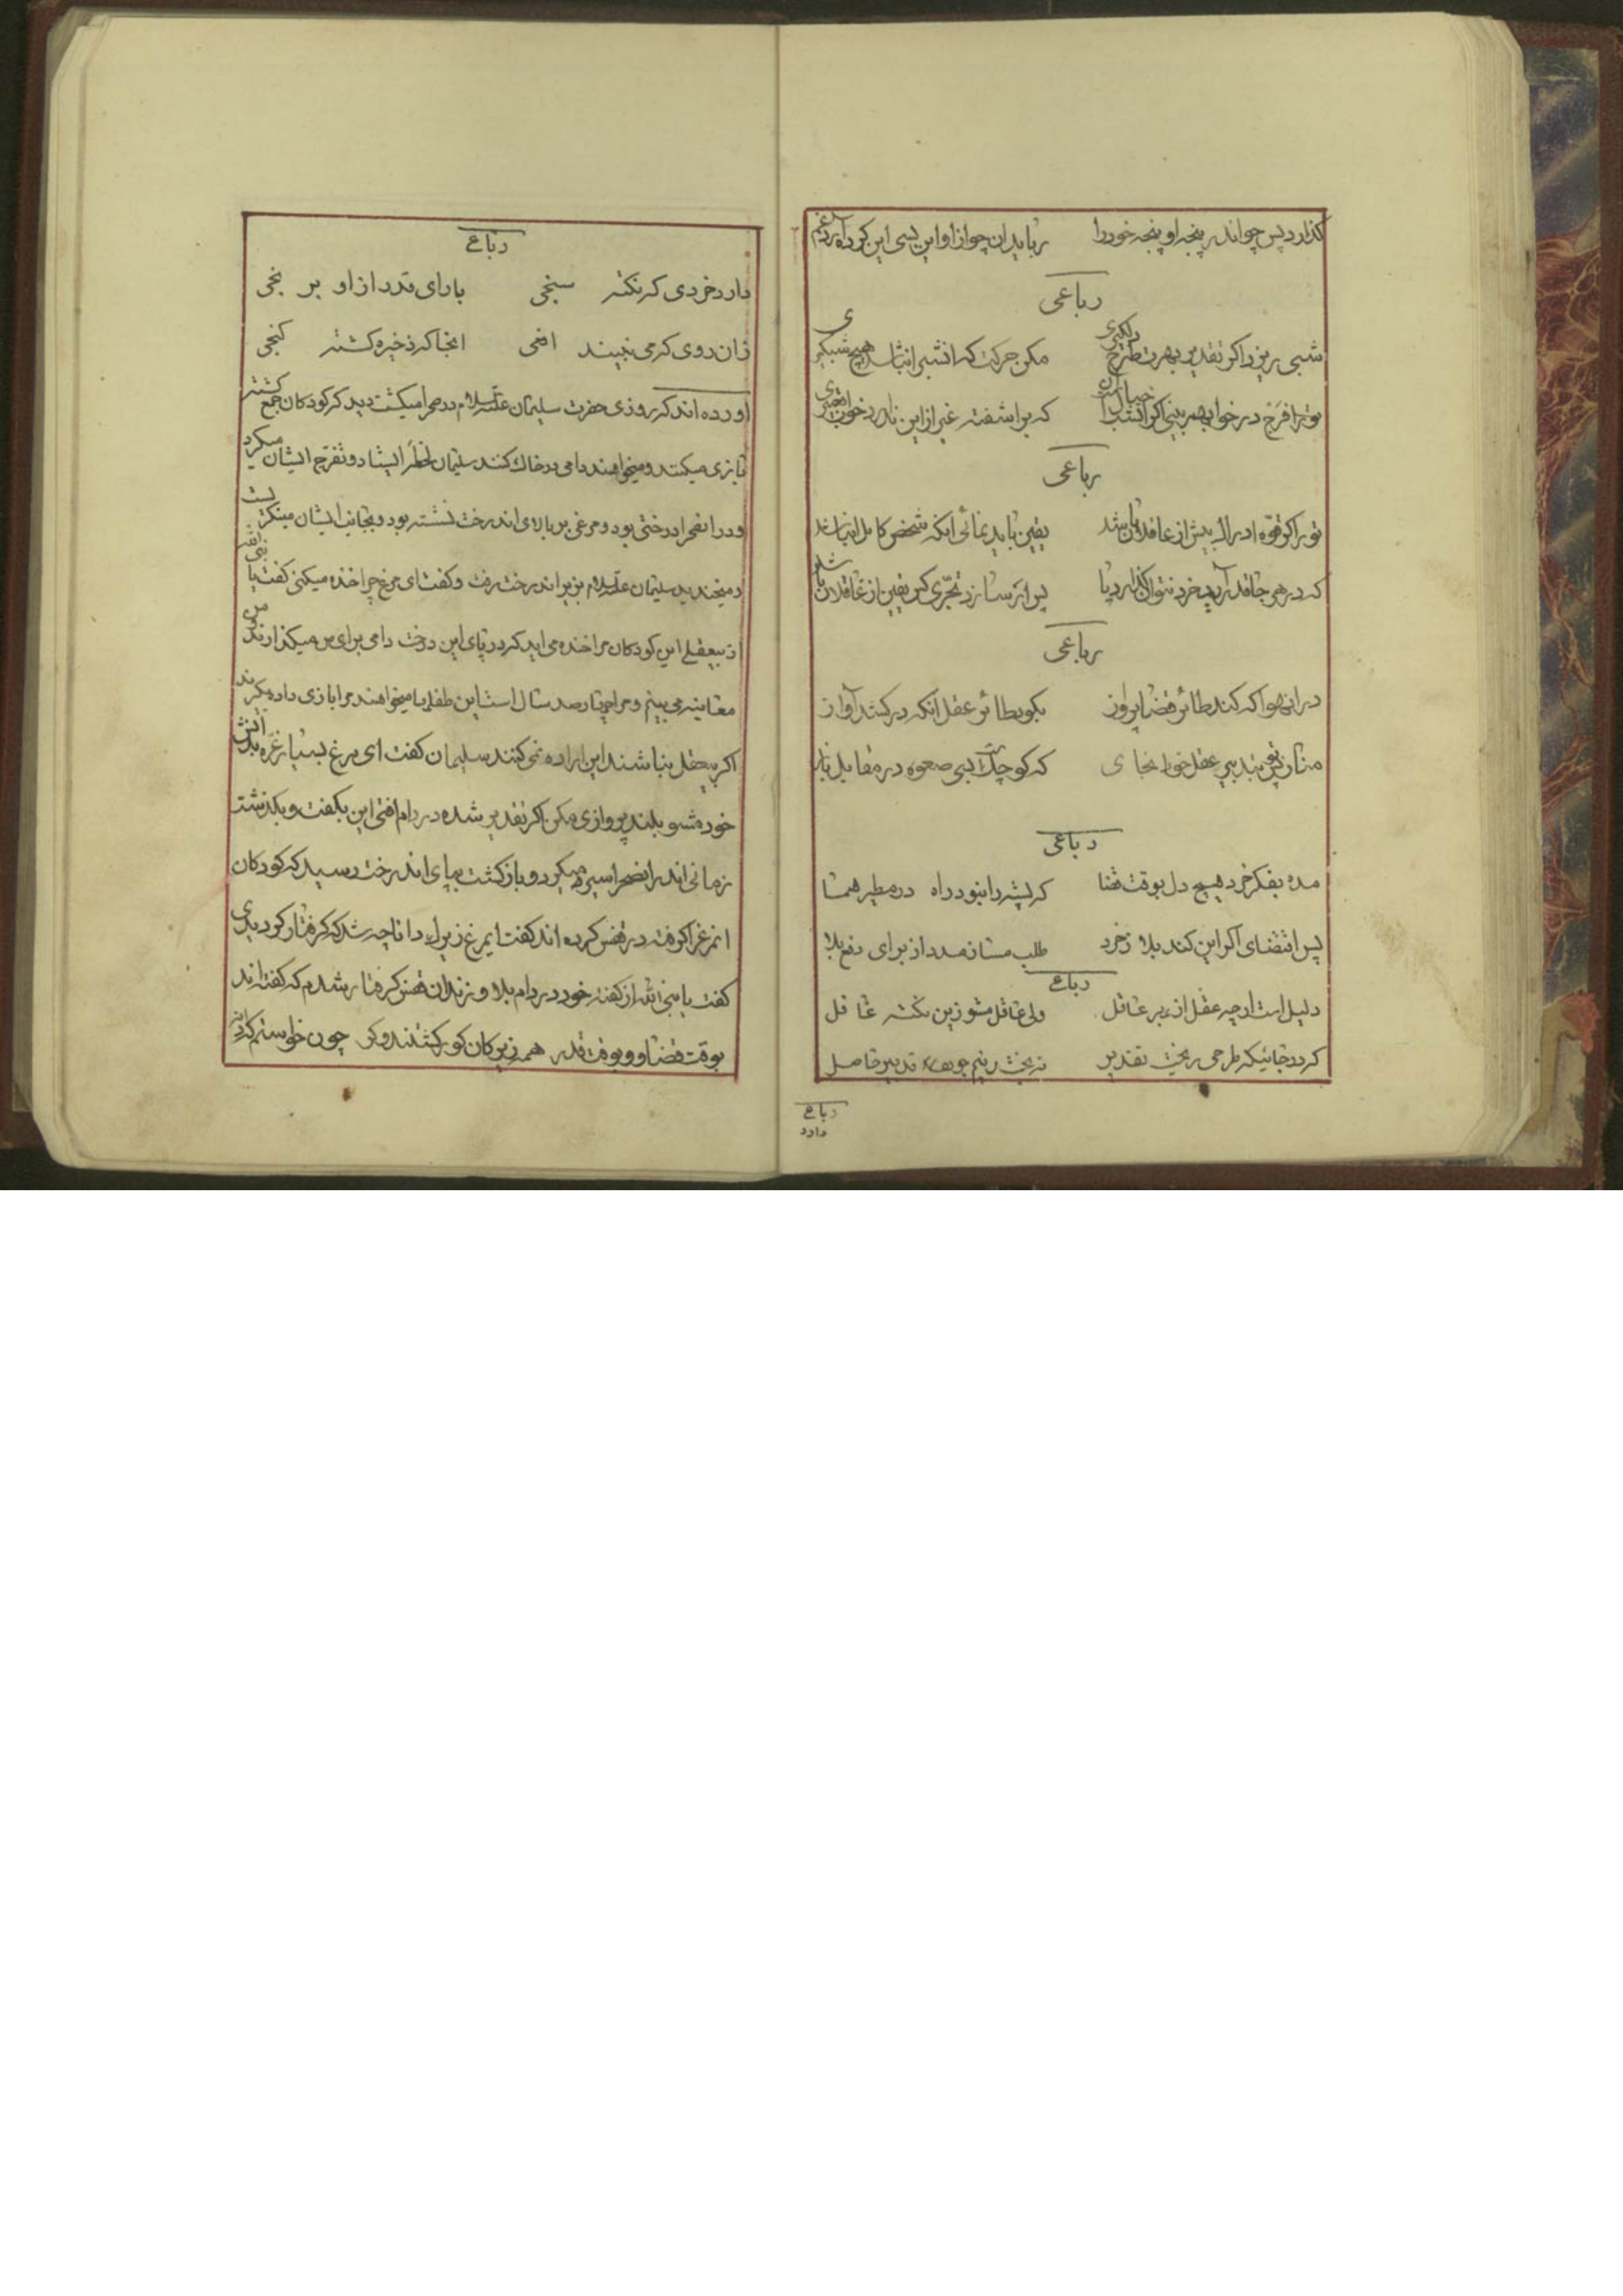 گذارد پس چو اندر پنجه او پنجه خود را رباید ان چو از او این بسی این کرده
رباعی
شبی ریزد اکر تقدیر بهرت طرح دلکیری مکن حرکت که انشب را نباشد هیچ شبکیری
تو را فرخ در خواب بهر بینی اکر که بر اشفته غیر از این ندارد خواب
رباعی
تو را کر قوّه ادراک بیش از عاقلان باشد یقین باید نمائی انکه شخص کامل ان باشد
که در هر جا قدر آرد خرد نتواند پا پس ار سازد تجرّی کس یقین از غافلان باشد
رباعی
در ان هوا که کند طائر قضا پرواز بکو بطائر عقل انکه در کشد آواز
مناز پر عقل خود انجا ی که کوچک است بسی صعوه در مقابل باز
رباعی
مده بفکر خرد هیچ دل بوقت قضا که پشه را نبود راه در مطیر هما
پس اقتضای اکر این کند بلا ز خرد طلب مساز مدد از برای دفع بلا
رباع
دلیل است ارچه عقل از بهر عاقل ولی غافل مشو زین نکته غا فل
که در جائیکه طرحی ریخت تقدیر نه بخت تدبیر حاصل
رباع
دارد
رباع
دارد خردی که نکته سنجی بارای قدر از او بر نجی
زان روی که می نبیند افعی انجا که ذخیره کشته کنجی
اورده اند که روزی حضرت سلیمان علیه السلام در صحرا میکشت دید که کودکان جمع کشته
بازی میکنند و میخواهند دامی در خاک کنند سلیمان لحظۀ ایستاد و تفرّج ایشان میکرد
و در انصحرا درختی بود و مرغی بر بالای اندرخت نشسته بود و بجانب ایشان مینکریست
و میخندید سلیمان علیه السلام بزیر اندرخت رفت و کفت ای مرغ چرا خنده میکنی کفت یا نبی الله
از بیعقلی این کودکان مرا خنده می اید که در پای این درخت دامی برای من میکذارند من
معاینه می بینم و مرا چهار صد سال است این طفلها میخواهند مرا بازی داده بکیرند
اکر بیعقل نباشند این اراده نمی کنند سلیمان کفت ای مرغ بسیار غرّه بدانش
خود مشو بلند پروازی مکن اکر تقدیر شده در دام افتی این بکفت و بکذشت
زمانی اندر انصحرا سیر میکرد و باز کشت بپای اندرخت رسید که کودکان
انمرغ را کرفته در قفس کرده اند کفت ایمرغ زیرک دانا چه شد که کرفتار کردیدی
کفت یا نبی الله از کفته خود در دام بلا و زندان قفس کرفتار شدم که کفته اند
بوقت قضا و بوقت قدر همه زیرکان کور کشتند و کر چون خواستم که